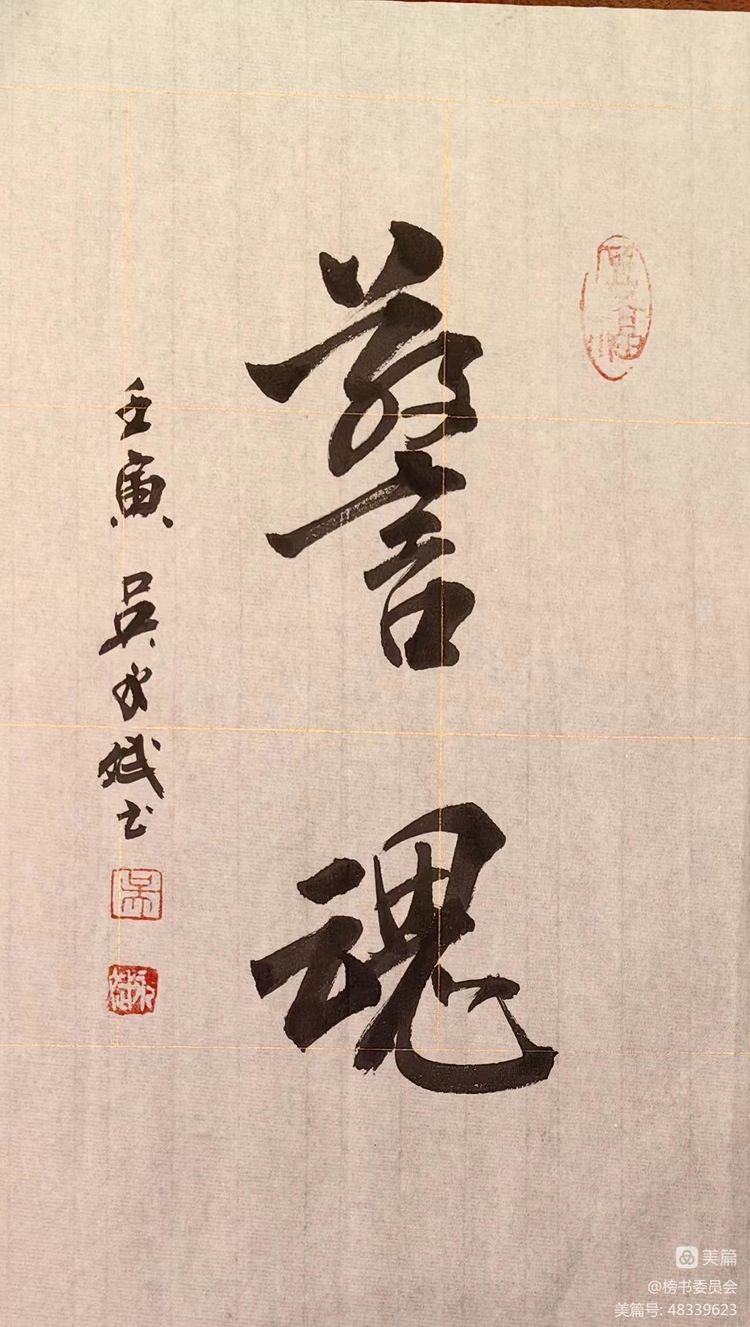 警魂
壬寅 吴永斌书
吴
美篇
@榜书委员会
美篇号: 48339623